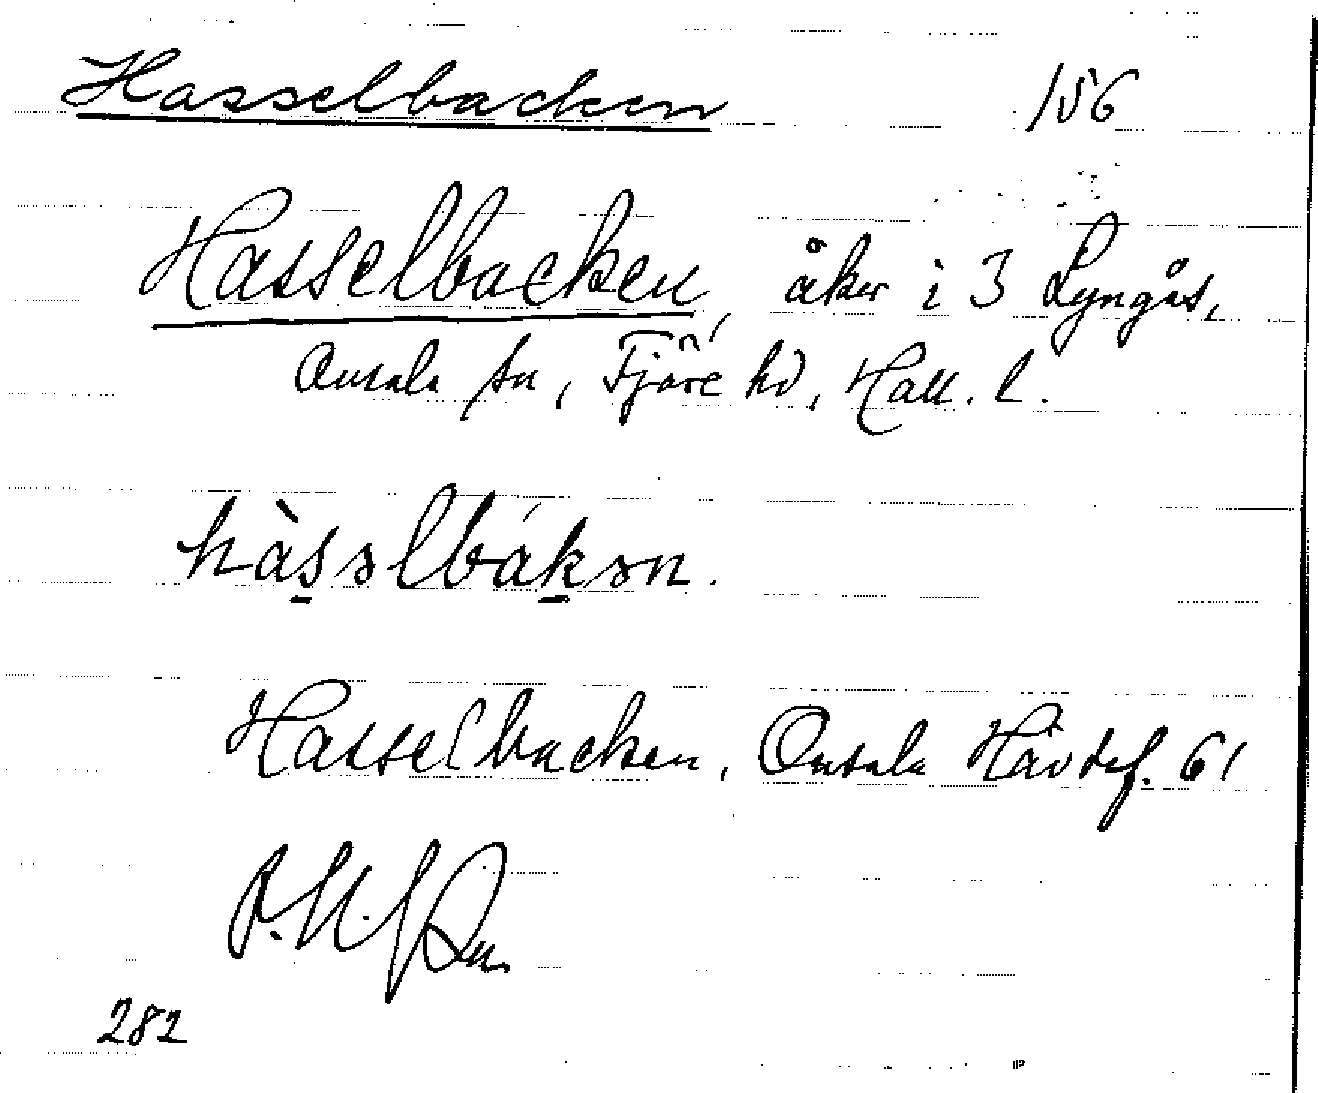 Hasselbacken 156
Hasselbacken, åker i 3 Lyngås,
Onsala sn, Fjäre hd, Hall. l.
hàsəlbákən.
Hasselbacken, Onsala Hävdef. 61
282